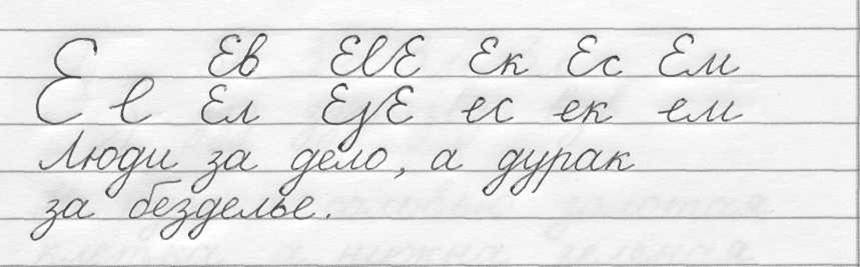 Е Ев ЕеЕ Ек Ес Ем
е Ел ЕзЕ ес ек ем
Люди за дело, а дурак
за безделье.